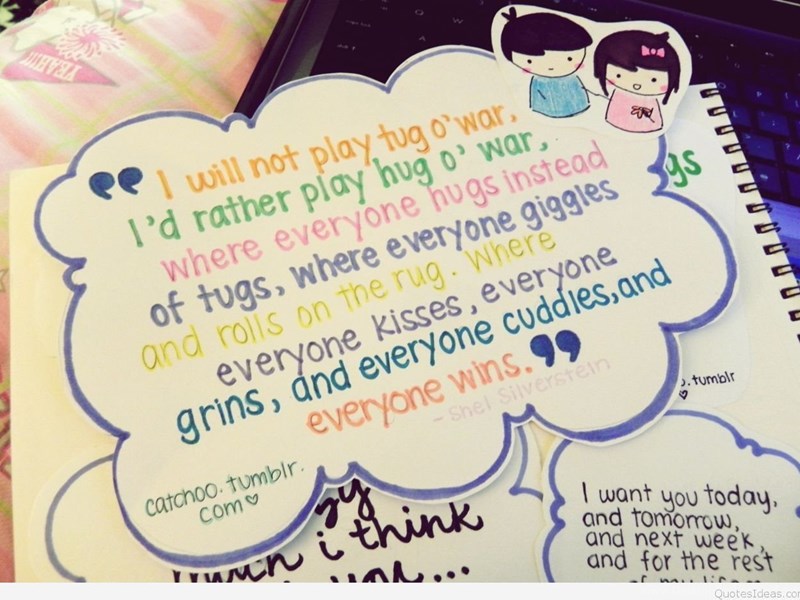 YEAH!!!
“ I will not play tug o'war,
I'd rather play hug o' war,
where everyone hugs instead
of tugs, where everyone giggles
and rolls on the rug. Where
everyone kisses, everyone
grins, and everyone cuddles, and
everyone wins. ”
- Shel Silverstein
catchoo.tumblr.
com♡
gs
.tumblr
♡
much i think
you...
I want you today,
and tomorrow,
and next week,
and for the rest
of my life
QuotesIdeas.com